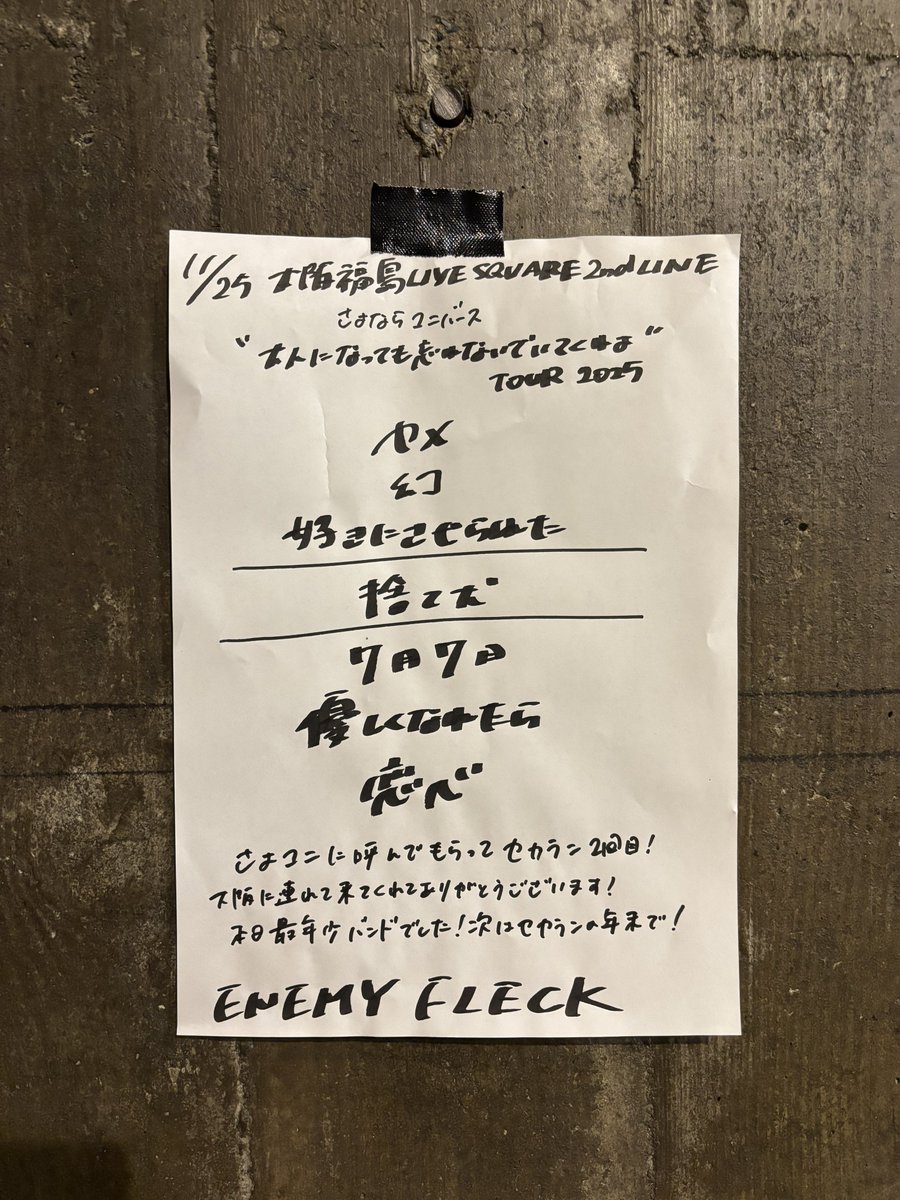 11/25 大阪福島LIVE SQUARE 2nd LINE
さよならユニバース
"大人になっても忘れないでいてくれよ"
TOUR 2025
ヤメ
幻
好きにさせられた
捨て犬
7月7日
優しくなれたら
恋心
さよユニに呼んでもらってセカラン2回目!
大阪に連れて来てくれてありがとうございます!
本日最年少バンドでした!次はセカランの年末で!
ENEMY FLECK